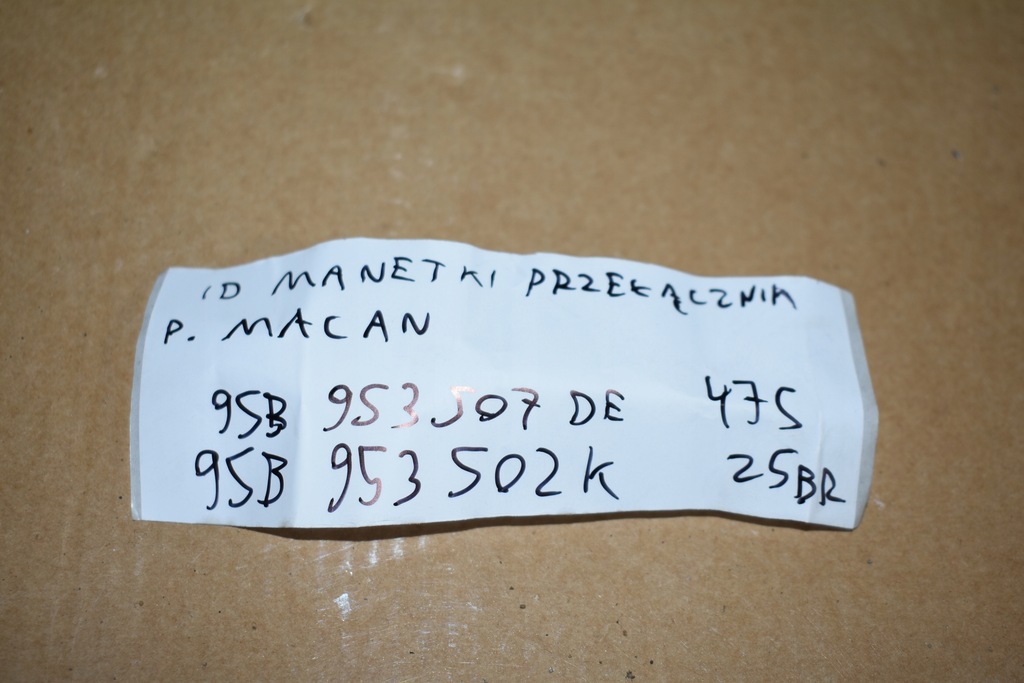 ID MANETKI PRZEŁĄCZNIK
P. MACAN
95B 953 507 DE 475
95B 953 502K 25BR